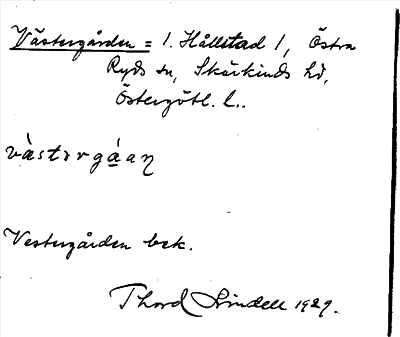 Västergården = 1. Hållstad 1, Östra
Ryds sn, Skärkinds hd,
Östergötl. l..
västərgáaɳ
Vestergården bek.
Thord Lindell 1929.